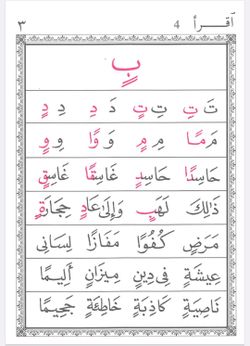 اقرأ 4 ٣
بٍ
تَ تِ تٍ دَ دِ دٍ
مَ مًا مِ مٍ وَ وًا وِ وٍ
حَاسِدًا حَاسِدٍ غَاسِقًا غَاسِقٍ
ذَالِكَ لَهَبٍ وَإِلَىٰ عَادٍ حِجَارَةٍ
مَرَضٌ كُفُوًا مَفَازًا لِسَانِي
عِيشَةٍ فِي دِينِ مِيزَانِ أَلِيمًا
نَاصِيَةٍ كَاذِبَةٍ خَاطِئَةٍ جَحِيمًا